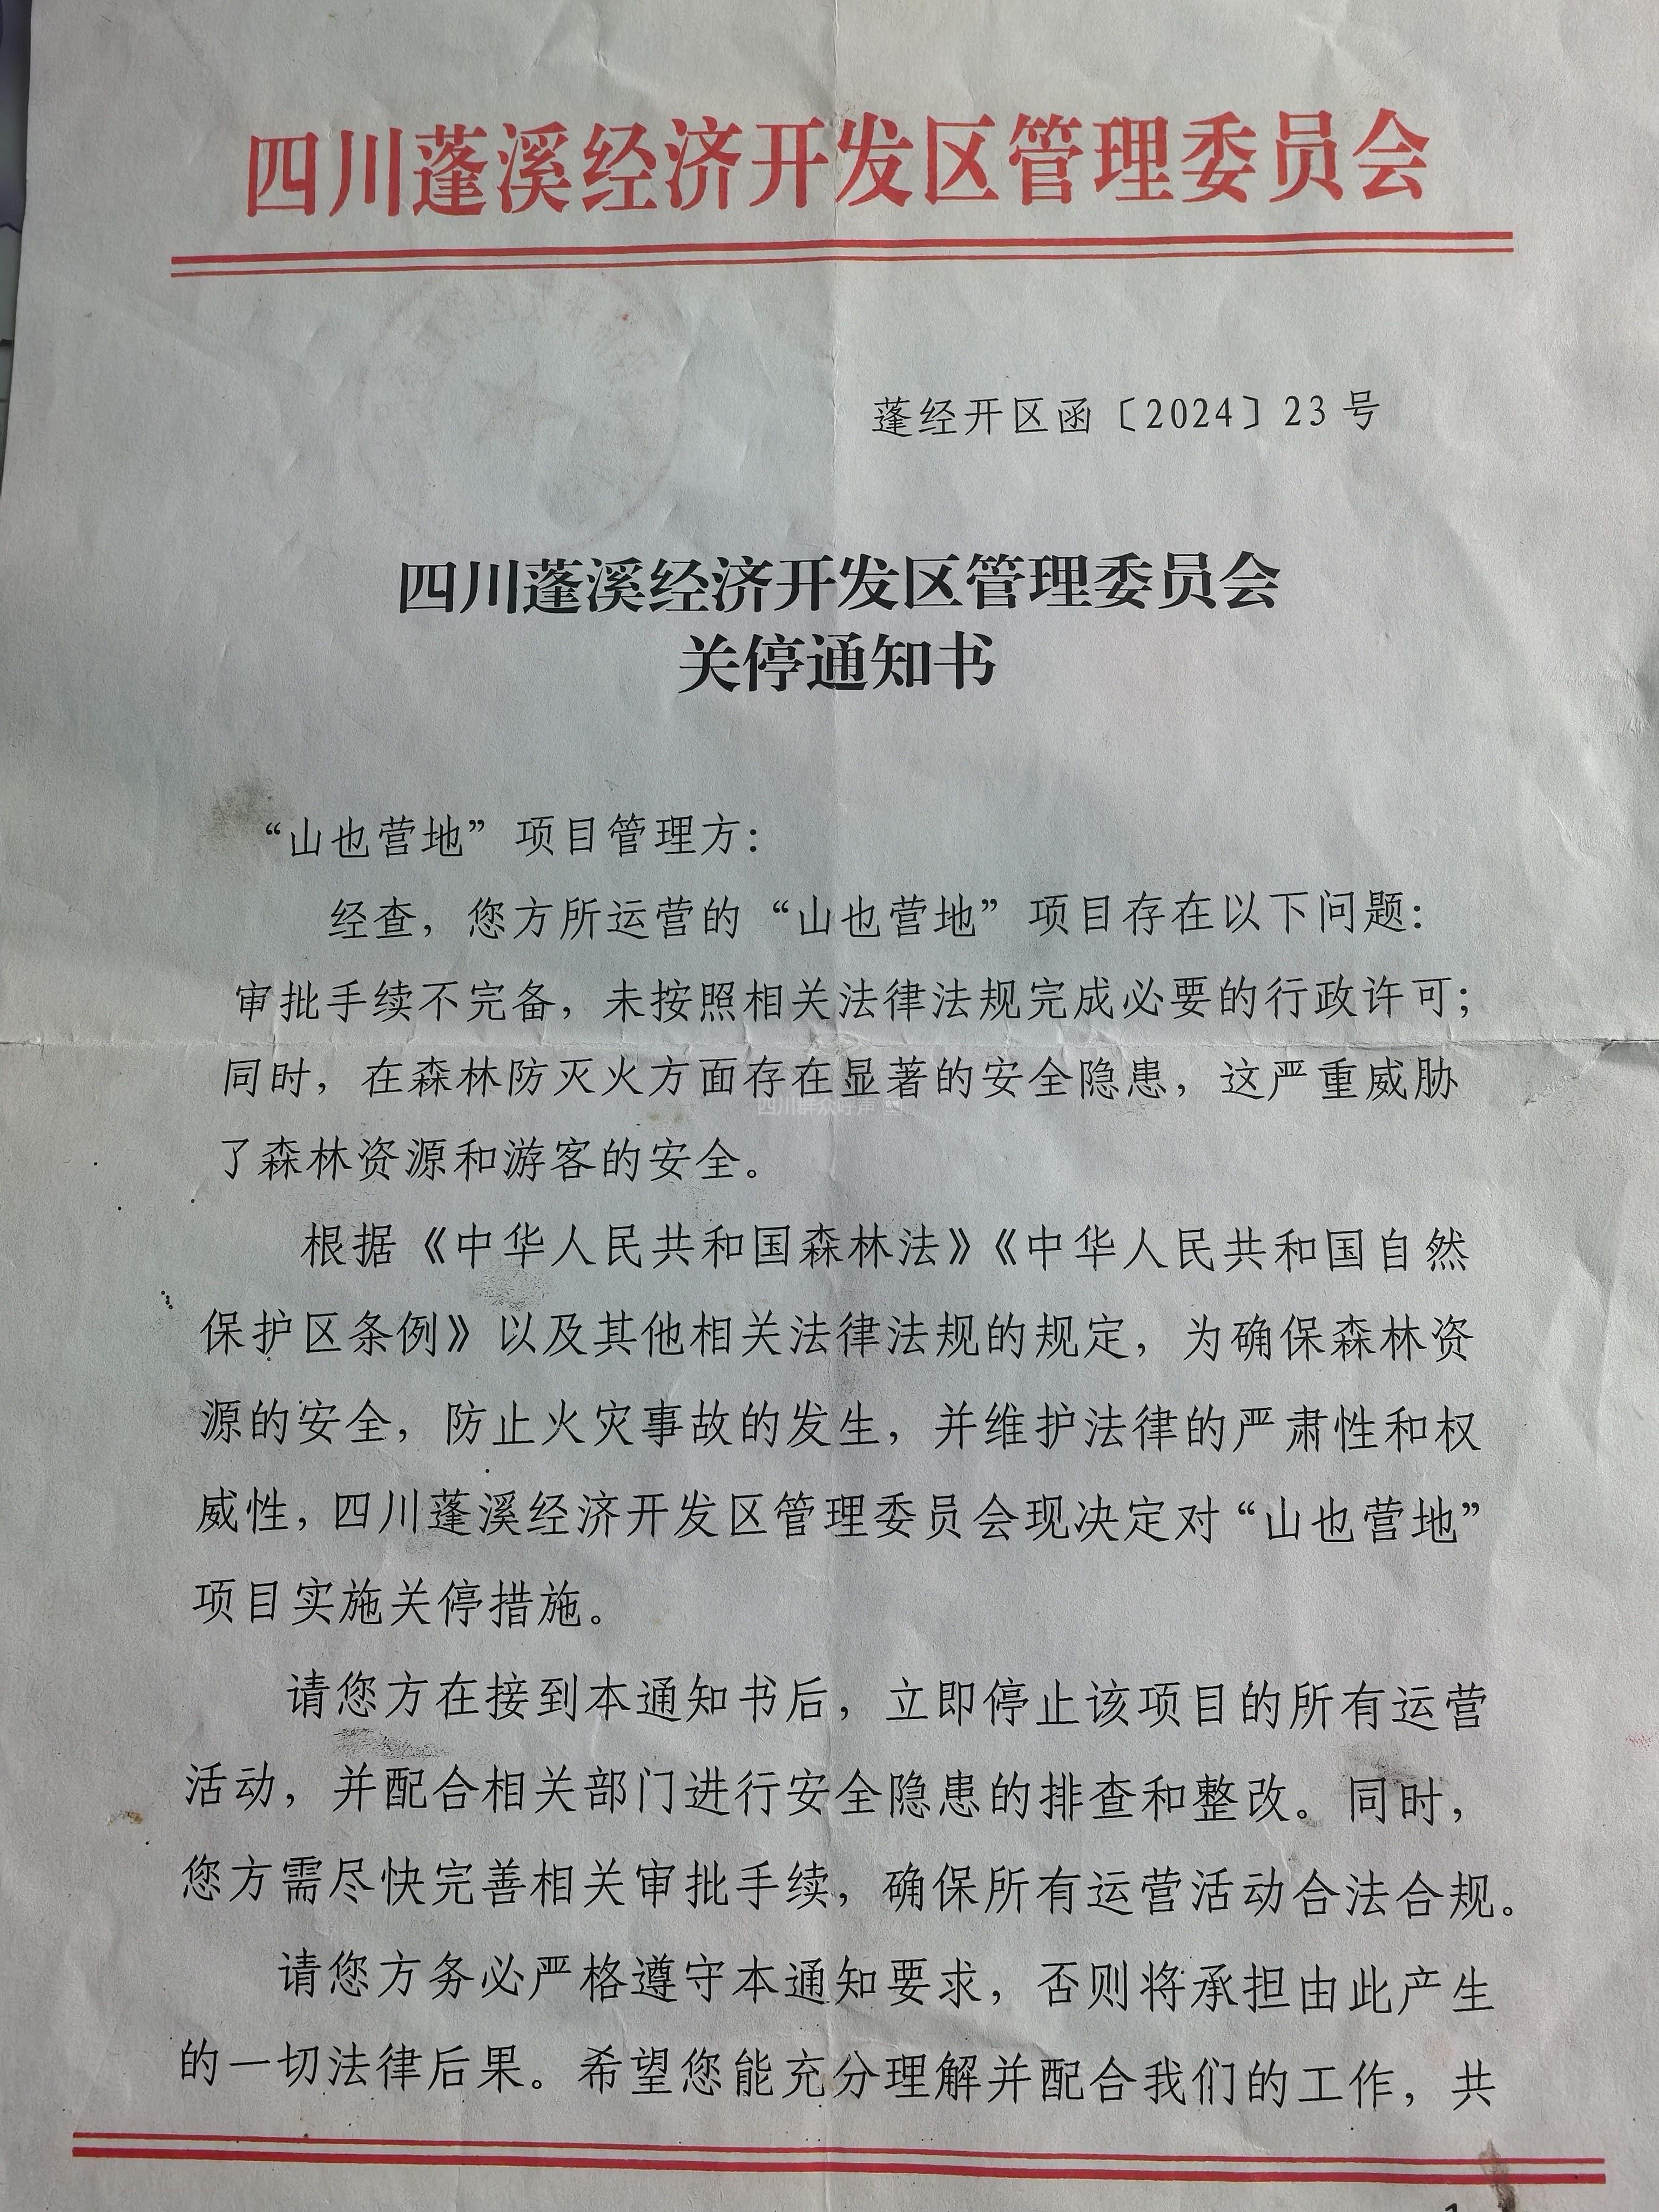 四川蓬溪经济开发区管理委员会
蓬经开区函〔2024〕23号
四川蓬溪经济开发区管理委员会
关停通知书
“山也营地”项目管理方：
经查，您方所运营的“山也营地”项目存在以下问题：
审批手续不完备，未按照相关法律法规完成必要的行政许可；
同时，在森林防灭火方面存在显著的安全隐患，这严重威胁
四川群众呼声
了森林资源和游客的安全。
根据《中华人民共和国森林法》《中华人民共和国自然
保护区条例》以及其他相关法律法规的规定，为确保森林资
源的安全，防止火灾事故的发生，并维护法律的严肃性和权
威性，四川蓬溪经济开发区管理委员会现决定对“山也营地”
项目实施关停措施。
请您方在接到本通知书后，立即停止该项目的所有运营
活动，并配合相关部门进行安全隐患的排查和整改。同时，
您方需尽快完善相关审批手续，确保所有运营活动合法合规。
请您方务必严格遵守本通知要求，否则将承担由此产生
的一切法律后果。希望您能充分理解并配合我们的工作，共